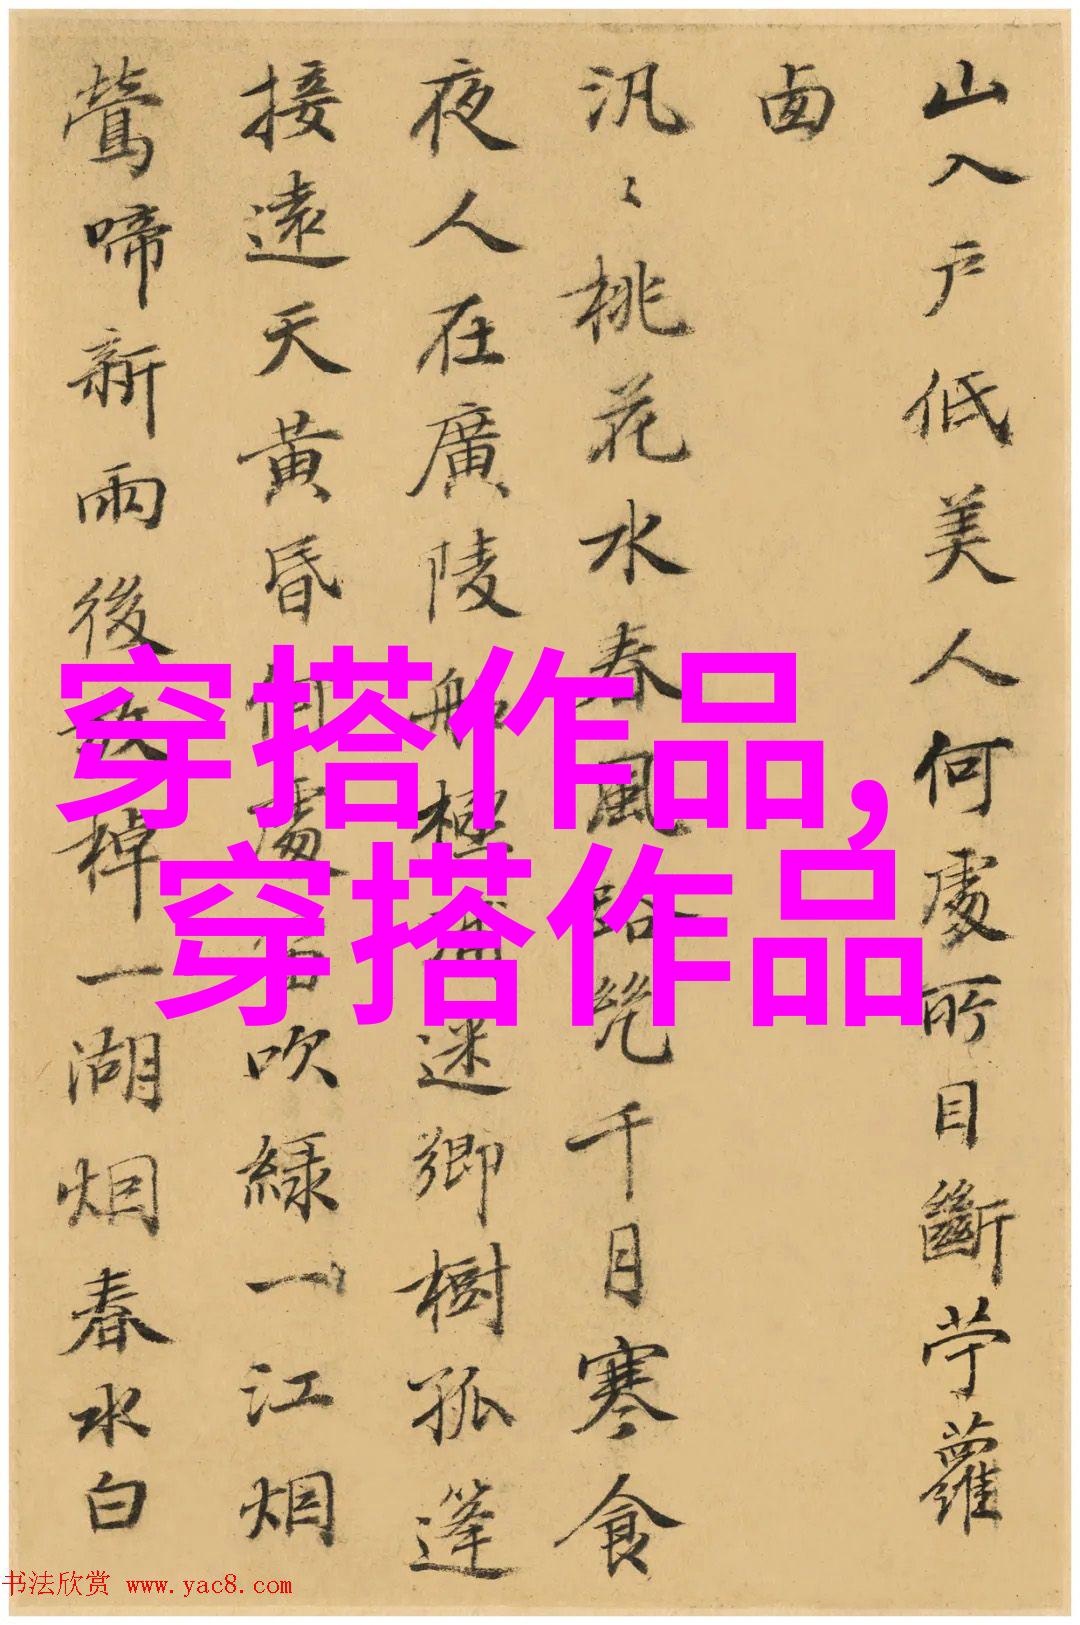 山入戶低美人何處所目斷苧蘿
西
汎〻桃花水春風路千月寒食
夜人在廣陵船極浦迷鄉樹孤篷
接遠天黃昏何處吹綠一江烟
鶯啼新雨後放棹一湖烟春水白
穿搭作品,
穿搭作品
书法欣赏 www.yac8.com